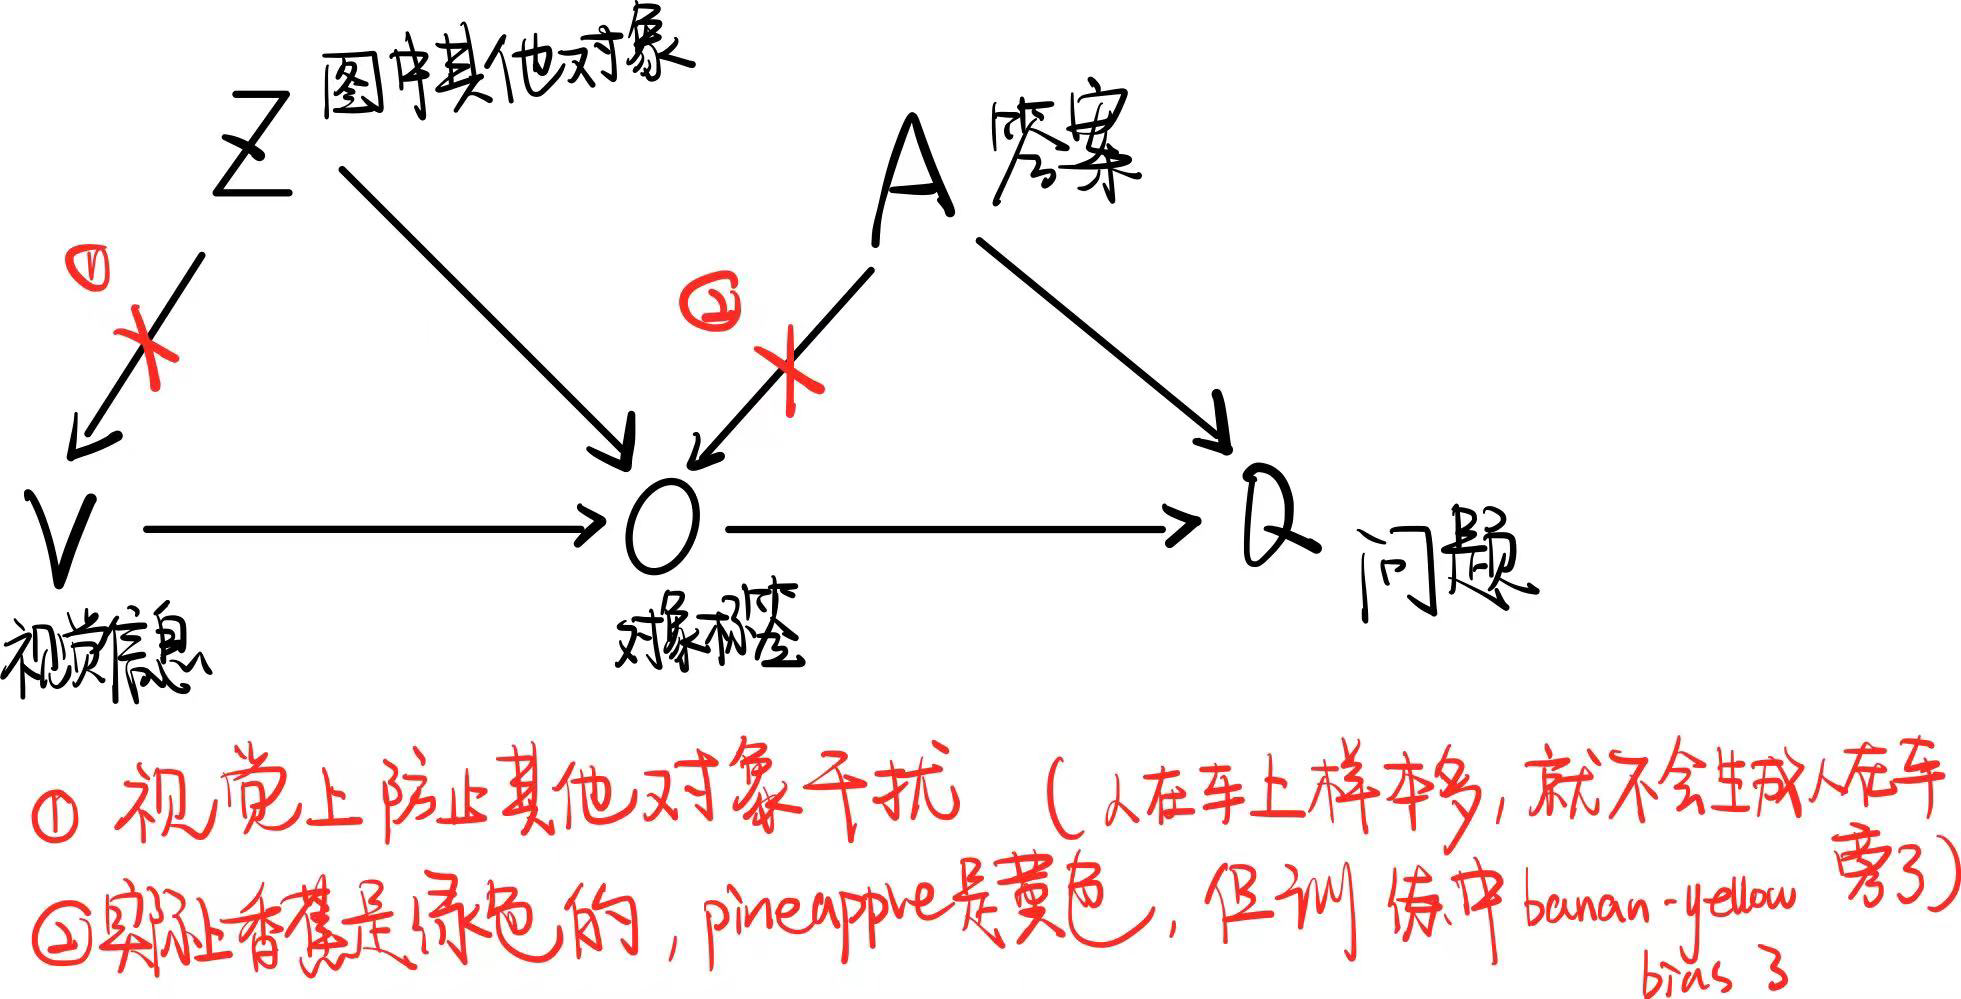 Z 图中其他对象
A 答案
①
②
V
O
Q 问题
视觉信息
对象标签
① 视觉上防止其他对象干扰 (人在车上样本多，就不会生成人在车旁了)
②实际上香蕉是绿色的，pineapple是黄色，但训练中banan-yellow
bias了